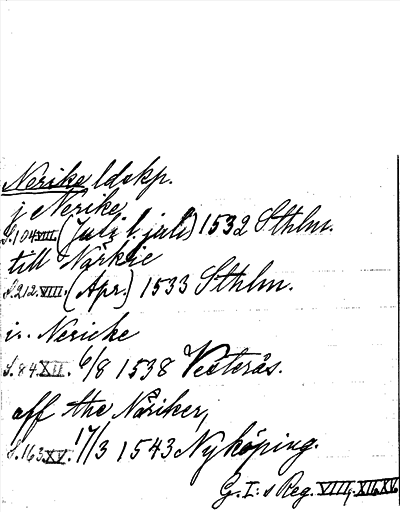 Nerike ldskp.
j Nerike
S. 104 VIII. (Julij l. juli) 1532 Sthlm.
till Närkie
S. 212. VIII. (Apr.) 1533 Sthlm.
i.. Nericke
S. 84 XII. 6/8 1538 Vesterås.
aff the Nåriker,
S. 163 XV. 17/3 1543 Nyköping.
G. I:s Reg. VIII, XII, XV.